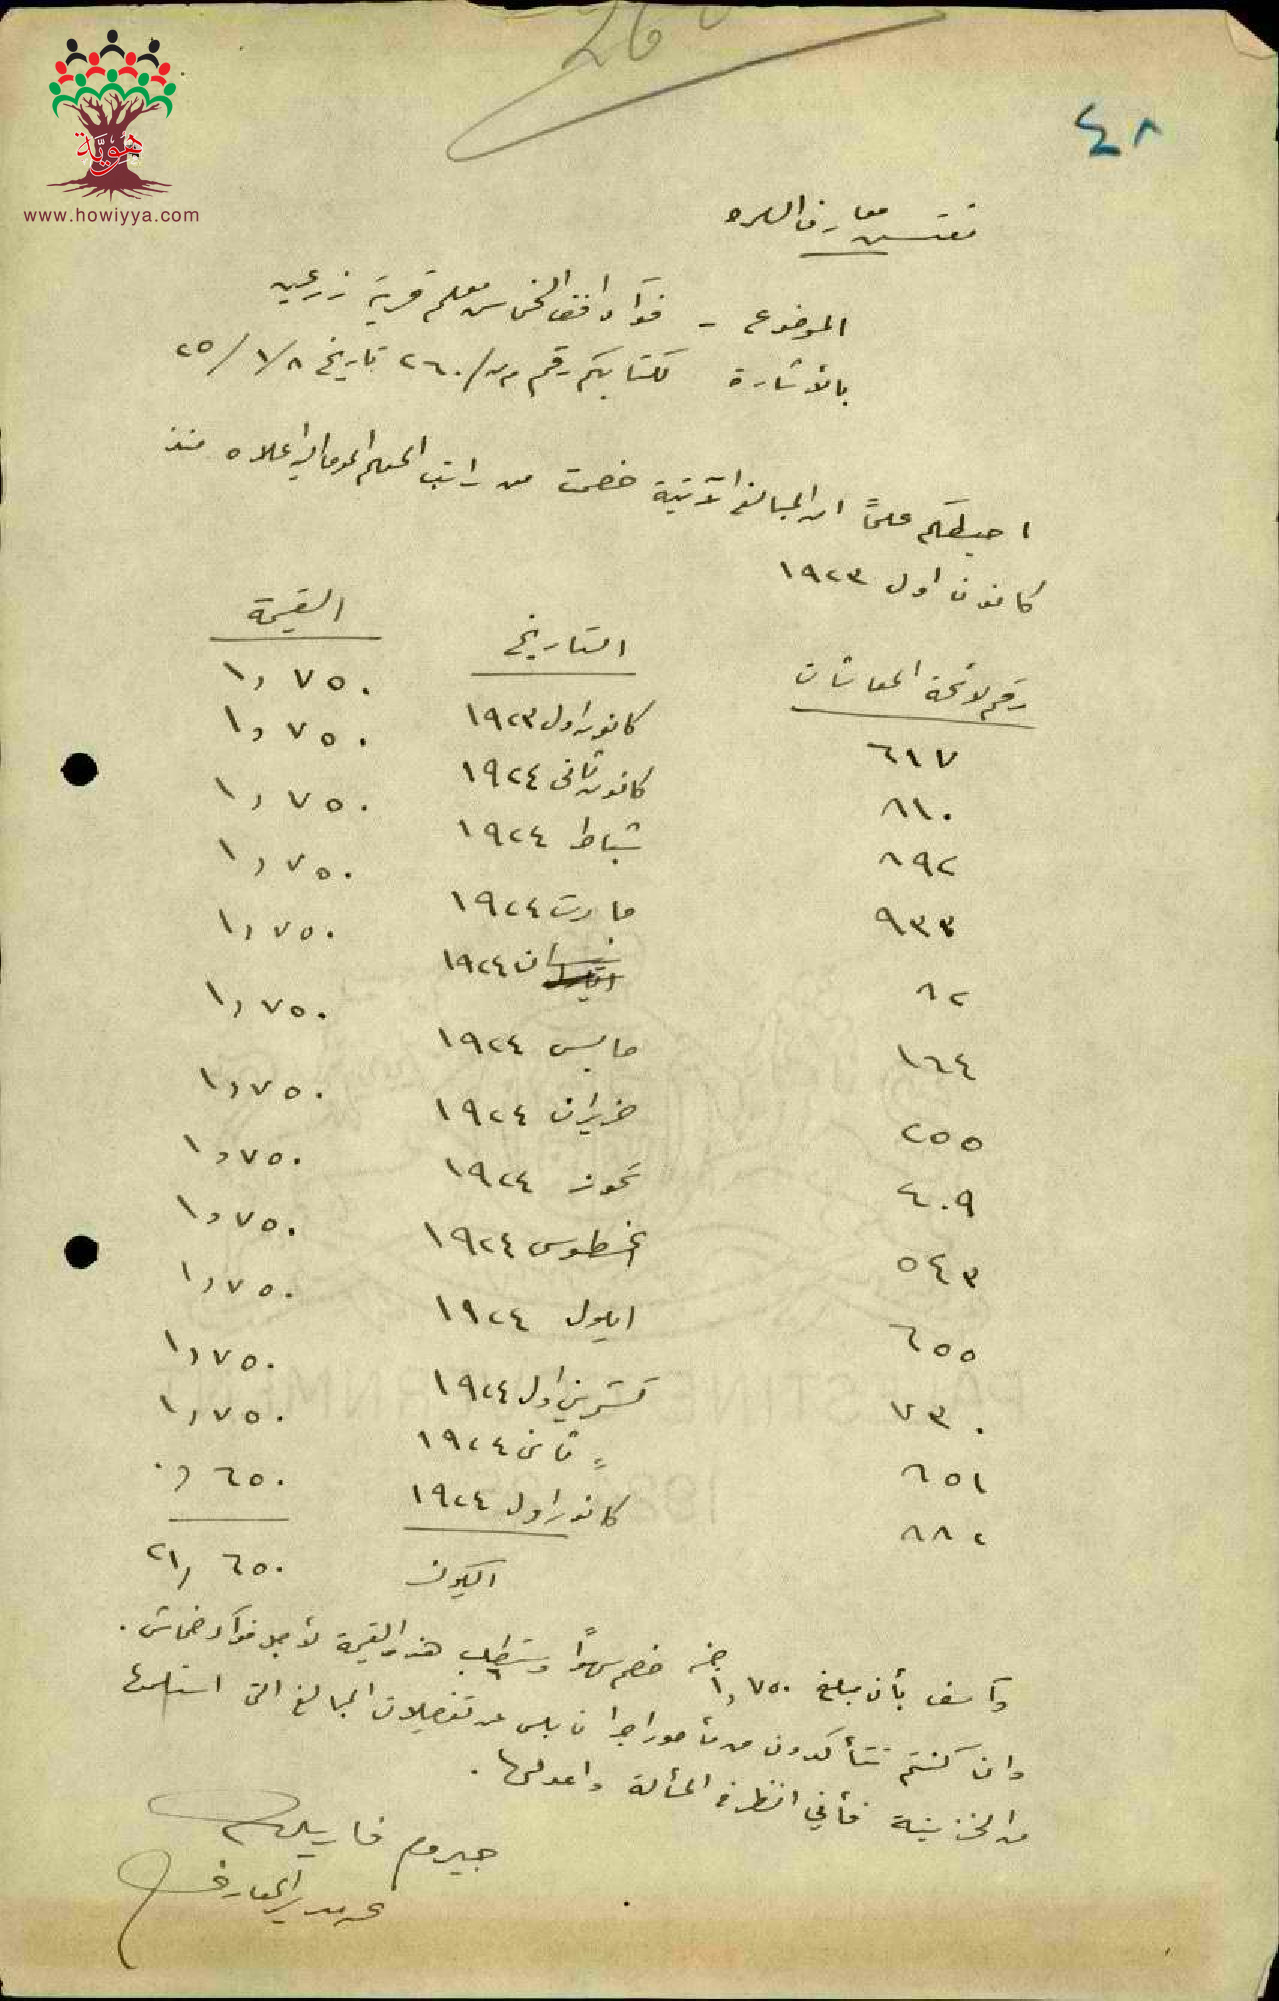 هوية
www.howiyya.com
٤٨
مفتش معارف
الموضوع - فؤاد افندي الخماش معلم قرية زرعين
بالأشارة لكتابكم رقم م ن/٢٦٠ تاريخ ٨/١/٢٥
احيطكم علماً ان المبالغ الآتية خصمت من راتب المعلم المومأ اليه اعلاه منذ
كانون اول ١٩٢٣
رقم لائحة المعاشات التاريخ القيمة
٦١٧ كانون اول ١٩٢٣ ١,٧٥٠
٨١٠ كانون ثاني ١٩٢٤ ١,٧٥٠
٨٩٢ شباط ١٩٢٤ ١,٧٥٠
٩٣٣ مارت ١٩٢٤ ١,٧٥٠
٨٢ نيسان ١٩٢٤ ١,٧٥٠
١٦٤ مايس ١٩٢٤ ١,٧٥٠
٢٥٥ حزيران ١٩٢٤ ١,٧٥٠
٤٠٩ تموز ١٩٢٤ ١,٧٥٠
٥٤٣ اغسطوس ١٩٢٤ ١,٧٥٠
٦٥٥ ايلول ١٩٢٤ ١,٧٥٠
٧٣٠ تشرين اول ١٩٢٤ ١,٧٥٠
٦٥١ " ثاني ١٩٢٤ ١,٧٥٠
٨٨٢ كانون اول ١٩٢٤ ٠,٦٥٠
اليكون ٢١,٦٥٠
وآسف بأن مبلغ ١,٧٥٠ خصم سهواً وستطلب هذه القيمة لأجل فؤاد خماش.
وان كنتم تتأكدون من مأمور اجرا نابلس عن تفصيلات المبالغ التي استلمها
من الخزينة فأني انظر في المسألة واعدلها.
جيروم فاريل
عن مدير المعارف